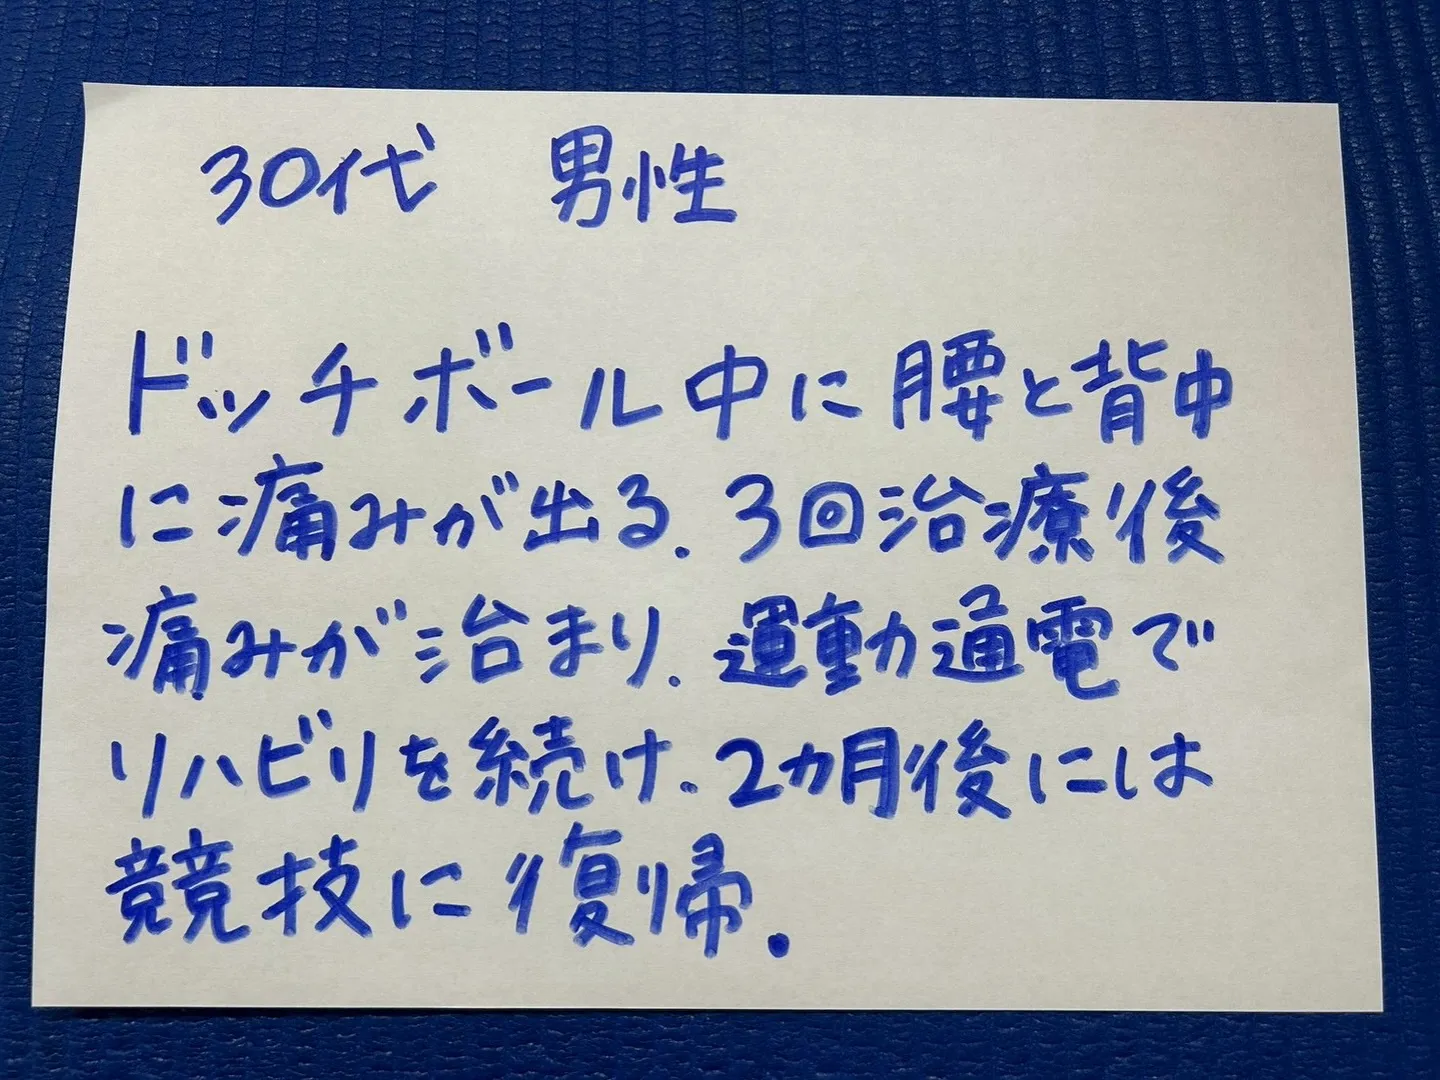 30代 男性
ドッチボール中に腰と背中
に痛みが出る.3回治療後
痛みが治まり.運動通電で
リハビリを続け.2カ月後には
競技に復帰.